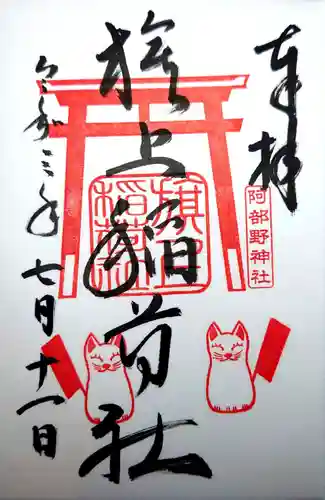 奉拝
阿部野神社
旗上稲荷社
旗上稲荷
令和三年七月十一日